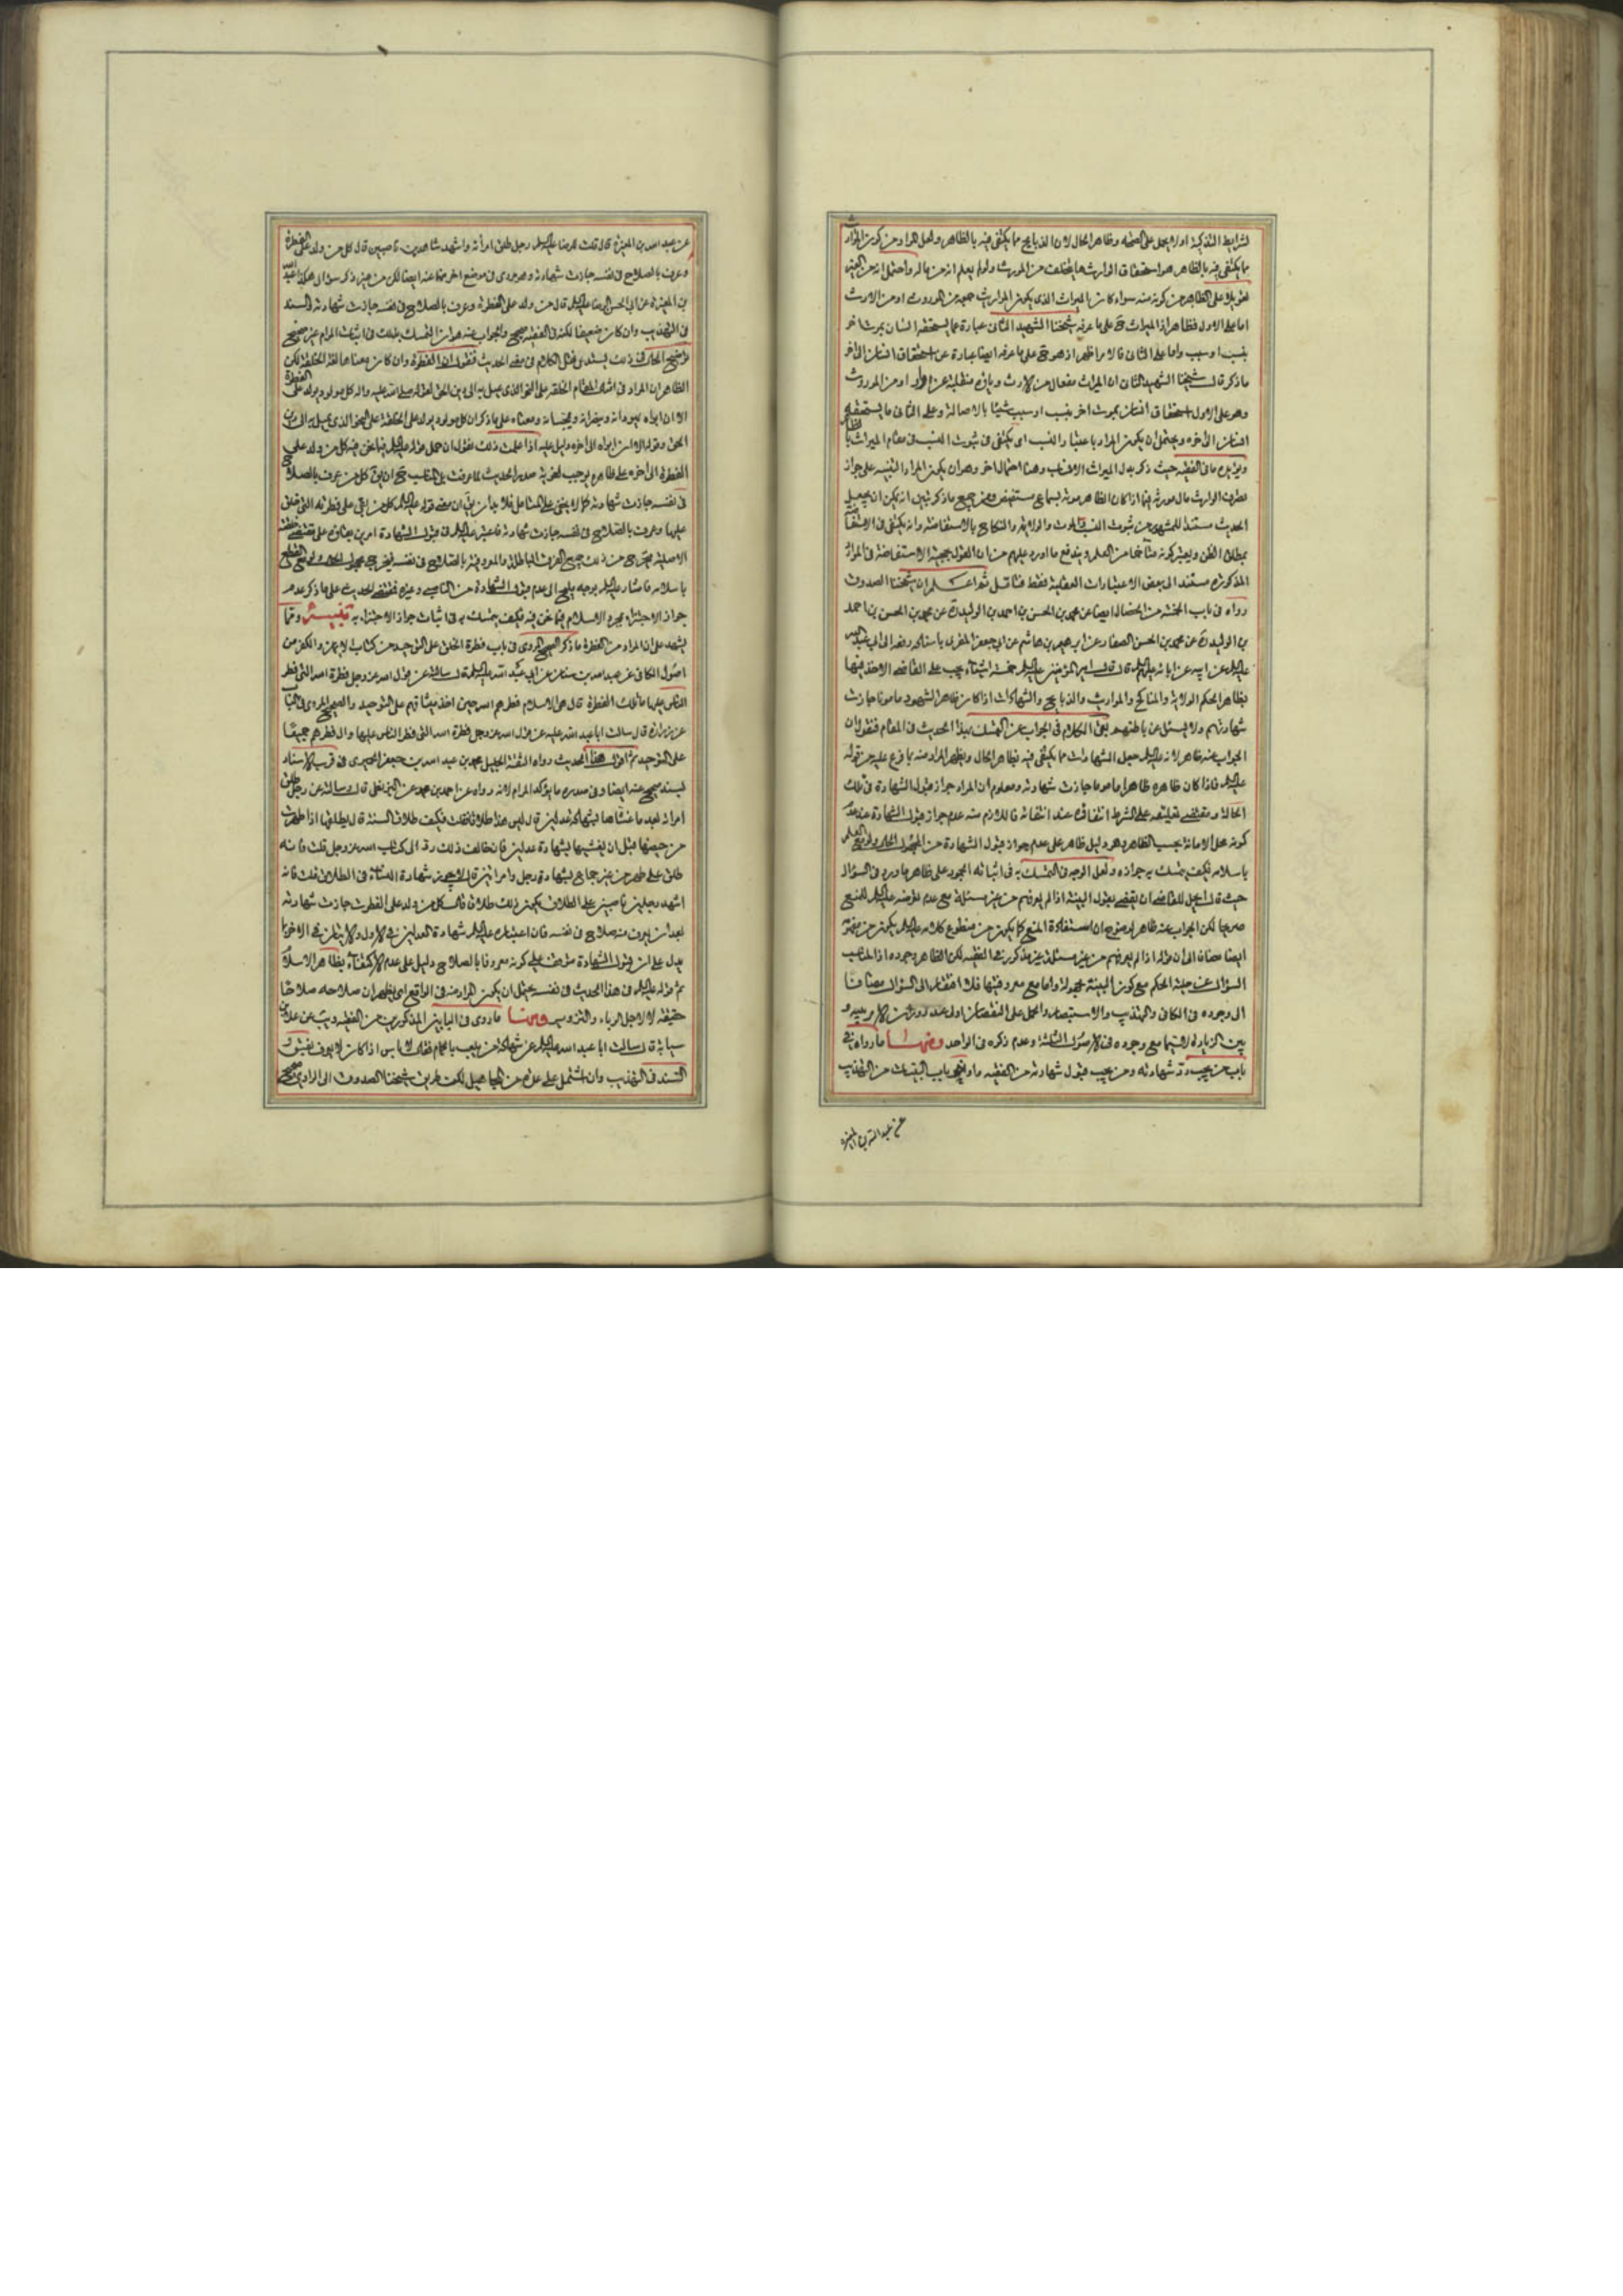 لشرايط التذكية اولا يحمل على الصحة وظاهر الحال لان الذبايح مما يكتفى فيه بالظاهر ولعل المراد من كون المواريث
مما يكتفى فيه بالظاهر هو استحقاق الوارث لما يختلف من المورث ولو لم يعلم انه من ماله واحتمل انه من الغير
تعويلا على الظاهر من كونه منه سواء كان بالميراث الذى يكون الوارث من الموروث او من الارث
اما على الاول فظاهر اذ الميراث ح على ما عرفه شيخنا الشهيد الثانى عبارة عما يستحقه انسان بموت اخر
بنسب او سبب واما على الثانى فالامر اظهر اذ هو ح على ما عرفه ايضا عبارة عن استحقاق انسان الى اخر
ما ذكر قال شيخنا الشهيد الثانى ان الميراث مفعال من الارث وياؤه منقلبة عن واو او من الموروث
وهو على الاول استحقاق انسان بموت اخر بنسب او سبب شيئا بالاصالة وعلى الثانى ما يستحقه
انسان الى اخره ويحتمل ان يكون المراد باعتبار النسب اى يكتفى فى ثبوت النسب فى مقام الميراث بالظاهر
ويؤيده ما فى الفقيه حيث ذكر بدل الميراث الانساب وهنا احتمال اخر وهو ان يكون المراد التنبيه على جواز
تصرف الوارث مال مورثه فيما اذا كان الظاهر موته بسماع مستفيض ومن جميع ما ذكر تبين انه يمكن ان يجعل
الحديث مستندا للمشهور من ثبوت النسب والموت والولاية والنكاح بالاستفاضة وانه يكتفى فى الاستفاضة
بمطلق الظن ولا يعتبر كونه متاخما من العلم ويندفع ما اورد عليهم من ان القول بحجية الاستفاضة فى الموارد
المذكورة مستند الى بعض الاعتبارات العقلية فقط فتامل ثم اعلم ان شيخنا الصدوق
رواه فى باب الخمسة من الخصال ايضا عن محمد بن الحسن بن احمد بن الوليد عن محمد بن الحسن بن احمد
بن الوليد عن محمد بن الحسن الصفار عن ابرهيم بن هاشم عن ابى جعفر المقرى باسناده رفعه الى ابى عبد الله
عليه السلم عن ابيه عن ابائه عليهم السلم قال قال امير المؤمنين عليه السلم خمسة اشياء يجب على القاضى الاخذ فيها
بظاهر الحكم الولاية والمناكح والمواريث والذبايح والشهادات اذا كان ظاهر الشهود مامونا جازت
شهادتهم ولا يسئل عن باطنهم بقى الكلام فى الجواب عن التمسك بهذا الحديث فى المقام فنقول ان
الجواب عنه ظاهر لانه عليه السلم جعل الشهادات مما يكتفى فيه بظاهر الحال ويظهر المراد منه بما فرع عليه من قوله
عليه السلم فاذا كان ظاهره ظاهرا مامونا جازت شهادته ومعلوم ان المراد جواز قبول الشهادة فى تلك
الحالة ومقتضى تعليقه على الشرط انتفائه عند انتفائه فاللازم منه عدم جواز قبول الشهادة عند عدم
كونه محل الامانة بحسب الظاهر وهو دليل ظاهر على عدم جواز قبول الشهادة من المجهول الحال ولو مع العلم
باسلامه فكيف يتمسك به جوازه ولعل الوجه فى التمسك به فى اثباته الجمود على ظاهر ما ورد فى السؤال
حيث قال ايحل للقاضى ان يقضى بقول البينة اذا لم يعرفهم من غير مسئلة مع عدم تعرضه عليه السلم للمنع
صريحا لكن الجواب عنه ظاهر لوضوح ان استفادة المنع كما يكون من منطوق كلامه عليه السلم يكون من مفهومه
ايضا مضافا الى ان قوله اذا لم يعرفهم من غير مسئلة غير مذكور فى الفقيه لكن الظاهر وجوده اذ المناسب
السؤال عن حلية الحكم مع كون البينة مجهولة واما مع معروفيتها فلا افتقار الى السؤال مضافا
الى وجوده فى الكافى والتهذيب والاستبصار والحمل على النقصان اولى عند دوران الامر بينه و
بين الزيادة لاسيما مع وجوده فى الاصول الثلثة وعدم ذكره فى الواحد ومنها ما رواه فى
باب من يجب رد شهادته ومن يجب قبول شهادته من الفقيه واواخر باب البينات من التهذيب
عن عبد الله بن المغيرة
عن عبد الله بن المغيرة قال قلت للرضا عليه السلم رجل طلق امرأته واشهد شاهدين ناصبين قال كل من ولد على الفطرة
وعرف بالصلاح فى نفسه جازت شهادته وهو مروى فى موضع اخر منهما عنه ايضا لكن من غير ذكر سؤال هكذا عبد الله
بن المغيرة عن ابى الحسن الرضا عليه السلم قال من ولد على الفطرة وعرف بالصلاح فى نفسه جازت شهادته والسند
فى التهذيب وان كان ضعيفا لكنه فى الفقيه صحيح والجواب عنه هو ان التمسك بذلك فى اثبات المرام غير صحيح
توضيح الحال فى ذلك يستدعى نقل الكلام فى معنى الحديث فنقول ان الفطرة وان كان معناها لغة الخلقة لكن
الظاهر ان المراد فى امثال المقام الخلقة على النحو الذى يميل به الى دين الحق لقوله صلى الله عليه واله كل مولود يولد على الفطرة
الا ان ابواه يهودانه وينصرانه ويمجسانه ومعناه على ما ذكر ان كل مولود يولد على الخلقة على النحو الذى يميل به الى دين
الحق وقوله الا ان ابواه الى اخره دليل عليه اذا علمت ذلك نقول ان حمل قوله عليه السلم فيما نحن فيه كل من ولد على
الفطرة الى اخره على ظاهره يوجب لغوية صدر الحديث لما عرفت بل المناسب ح ان يق كل من عرف بالصلاح
فى نفسه جازت شهادته كما لا يخفى على المتامل فلا بد من ان يق ان معنى قوله عليه السلم كل من بقى على فطرته التى خلق
عليها وعرف بالصلاح فى نفسه جازت شهادته فاعتبر عليه السلم فى قبول الشهادة امرين بقائه على مقتضى خلقته
الاصلية فيخرج من ذلك جميع الفرق الباطلة والمعروفية بالصلاح فى نفسه فيخرج مجهول الحال ولو مع القطع
باسلامه فاشار عليه السلم بوجه مليح الى عدم قبول الشهادة من الناصبى وغيره فمقتضى الحديث على ما ذكر عدم
جواز الاجتزاء بمجرد الاسلام فيما نحن فيه فكيف يتمسك به فى اثبات جواز الاجتزاء به تنبيه ومما
يشهد على ان المراد من الفطرة ما ذكر الصحيح المروى فى باب فطرة الخلق على التوحيد من كتاب الايمان والكفر من
اصول الكافى عن عبد الله بن سنان عن ابى عبد الله عليه السلم قال سالته عن قول الله عز وجل فطرة الله التى فطر
الناس عليها ما تلك الفطرة قال هى الاسلام فطرهم الله حين اخذ ميثاقهم على التوحيد والصحيح المروى فى الباب
عن زرارة قال سالت ابا عبد الله عليه عن قول الله عز وجل فطرة الله التى فطر الناس عليها قال فطرهم جميعا
على التوحيد ثم اقول هذا الحديث رواه الثقة الجليل محمد بن عبد الله بن جعفر الحميرى فى قرب الاسناد
بسند صحيح عنه ايضا وفى صدره ما يؤكد المرام لانه رواه عن احمد بن محمد عن البزنطى قال وسالته عن رجل طلق
امراته بعد ما غشاها بشهادة عدلين قال ليس هذا طلاقا فقلت فكيف طلاق السنة قال يطلقها اذا طهرت
من حيضها قبل ان يغشيها بشهادة عدلين فان خالف ذلك رد الى كتاب الله عز وجل قلت فانه
طلق على طهر من غير جماع بشهادة رجل وامراتين قال لا يجوز شهادة النساء فى الطلاق قلت فانه
اشهد رجلين ناصبين على الطلاق يكون ذلك طلاقا قال كل من ولد على الفطرت جازت شهادته
بعد ان يعرف منه صلاح فى نفسه فان اعتباره عليه السلم شهادة العدلين فى الاول
يدل على ان قبول الشهادة متوقف على كونه معروفا بالصلاح دليل على عدم الاكتفاء بظاهر الاسلام
ثم قوله عليه السلم فى هذا الحديث فى نفسه يحتمل ان يكون المراد منه فى الواقع اى يظهر ان صلاحه صلاحا
حقيقة لا لاجل الرياء والتزوير ومنها ما روى فى البابين المذكورين من الفقيه ويب عن علاء بن
سيابة قال سالت ابا عبد الله عليه السلم عن شهادة من يلعب بالحمام فقال لا باس اذا كان لا يعرف بفسق و
السند فى التهذيب وان اشتمل على عدة من المجاهيل لكن طريق شيخنا الصدوق الى الراوى صحيح